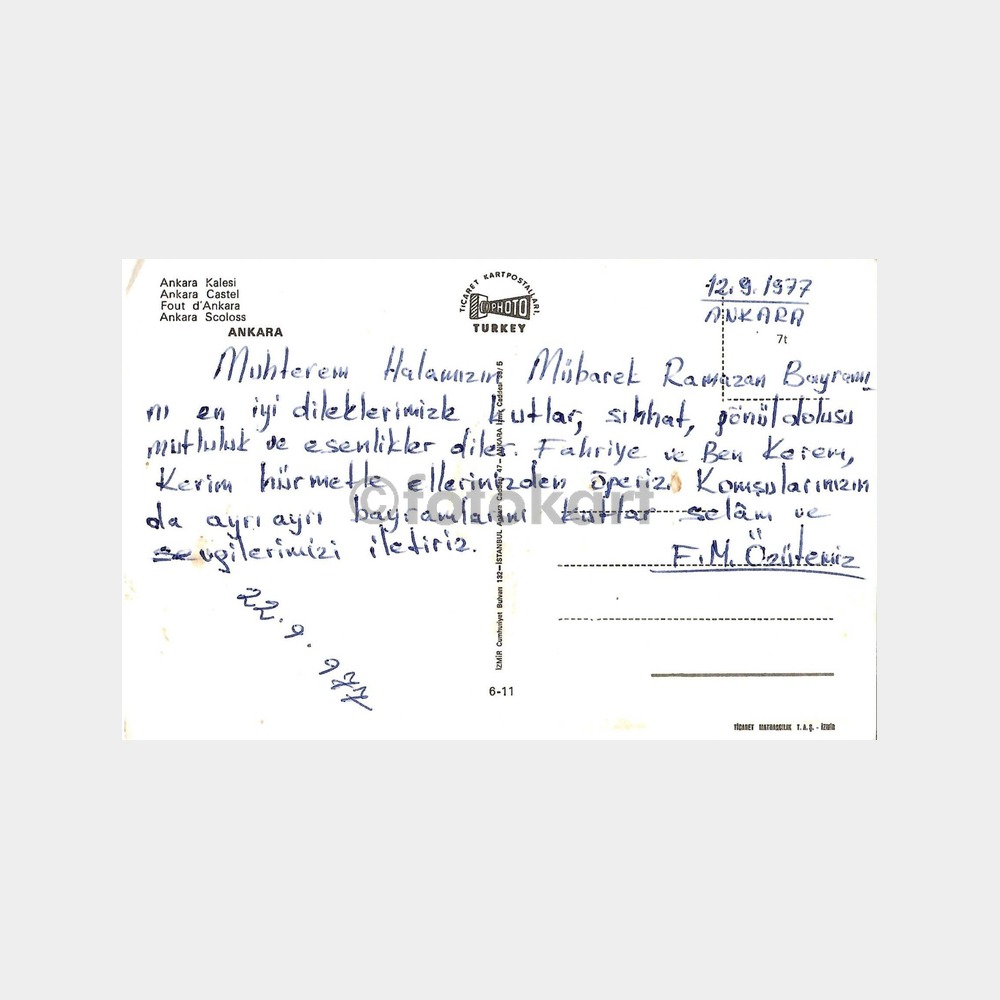 Ankara Kalesi
Ankara Castel
Fout d'Ankara
Ankara Scoloss
ANKARA
TİCARET KARTPOSTALLARI.
PHOTO
TURKEY
12.9.1977
ANKARA
7t
Muhterem Halamızın Mübarek Ramazan Bayramı
nı en iyi dileklerimizle kutlar, sıhhat, gönül dolusu
mutluluk ve esenlikler diler. Fahriye ve Ben Kerem,
Kerim hürmetle ellerinizden öperiz. Komşularımızın
da ayrı ayrı bayramlarını kutlar selâm ve
sevgilerimizi iletiriz.
F.M. Özütemiz
22.9.977
©fotokart
İZMİR Cumhuriyet Bulvarı 132-İSTANBUL Ankara Caddesi 47-ANKARA Caddesi /5
6-11
TİCARET MATBAACILIK T.A.Ş. - İZMİR